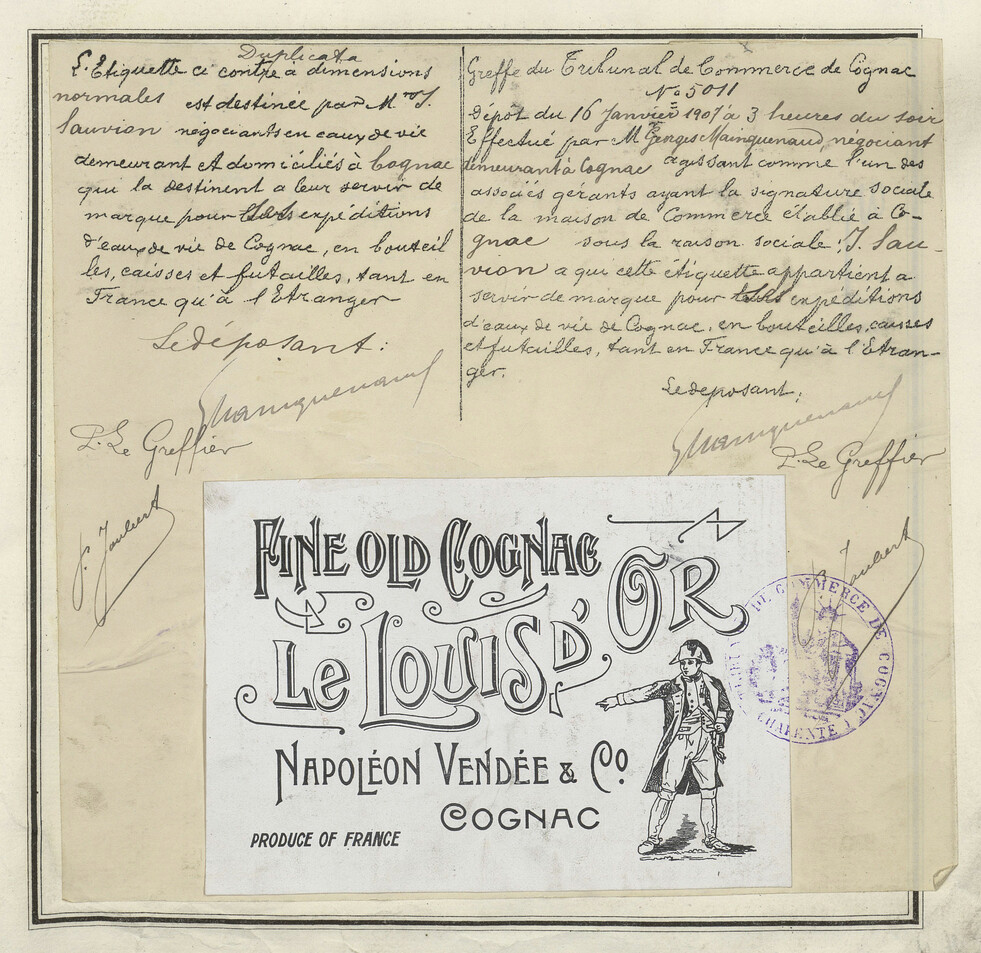 Duplicata
L'Etiquette ci contre à dimensions
normales est destinée par Mrs J.
Sauvion négociants en eaux de vie
demeurant et domiciliés à Cognac
qui la destinent a leur servir de
marque pour expéditions
d'eaux de vie de Cognac, en bouteil
les, caisses et futailles, tant en
France qu'à l'Etranger
Le déposant:
GMainguenaud
P. Le Greffier
Joubert
Greffe du Tribunal de Commerce de Cognac
No 5011
Dépôt du 16 Janvier 1907 à 3 heures du soir
Effectué par M Georges Mainguenaud, négociant
demeurant à Cognac agissant comme l'un des
associés gérants ayant la signature sociale
de la maison de Commerce établie à Co-
gnac sous la raison sociale: J. Sau-
vion a qui cette étiquette appartient a
servir de marque pour expéditions
d'eaux de vie de Cognac, en bouteilles, caisses
et futailles, tant en France qu'à l'Etran-
ger.
Le deposant:
GMainguenaud
P. Le Greffier
Joubert
FINE OLD COGNAC
LE LOUIS D'OR
NAPOLÉON VENDÉE & Co
COGNAC
PRODUCE OF FRANCE
DE COMMERCE DE COGNAC
CHARENTE